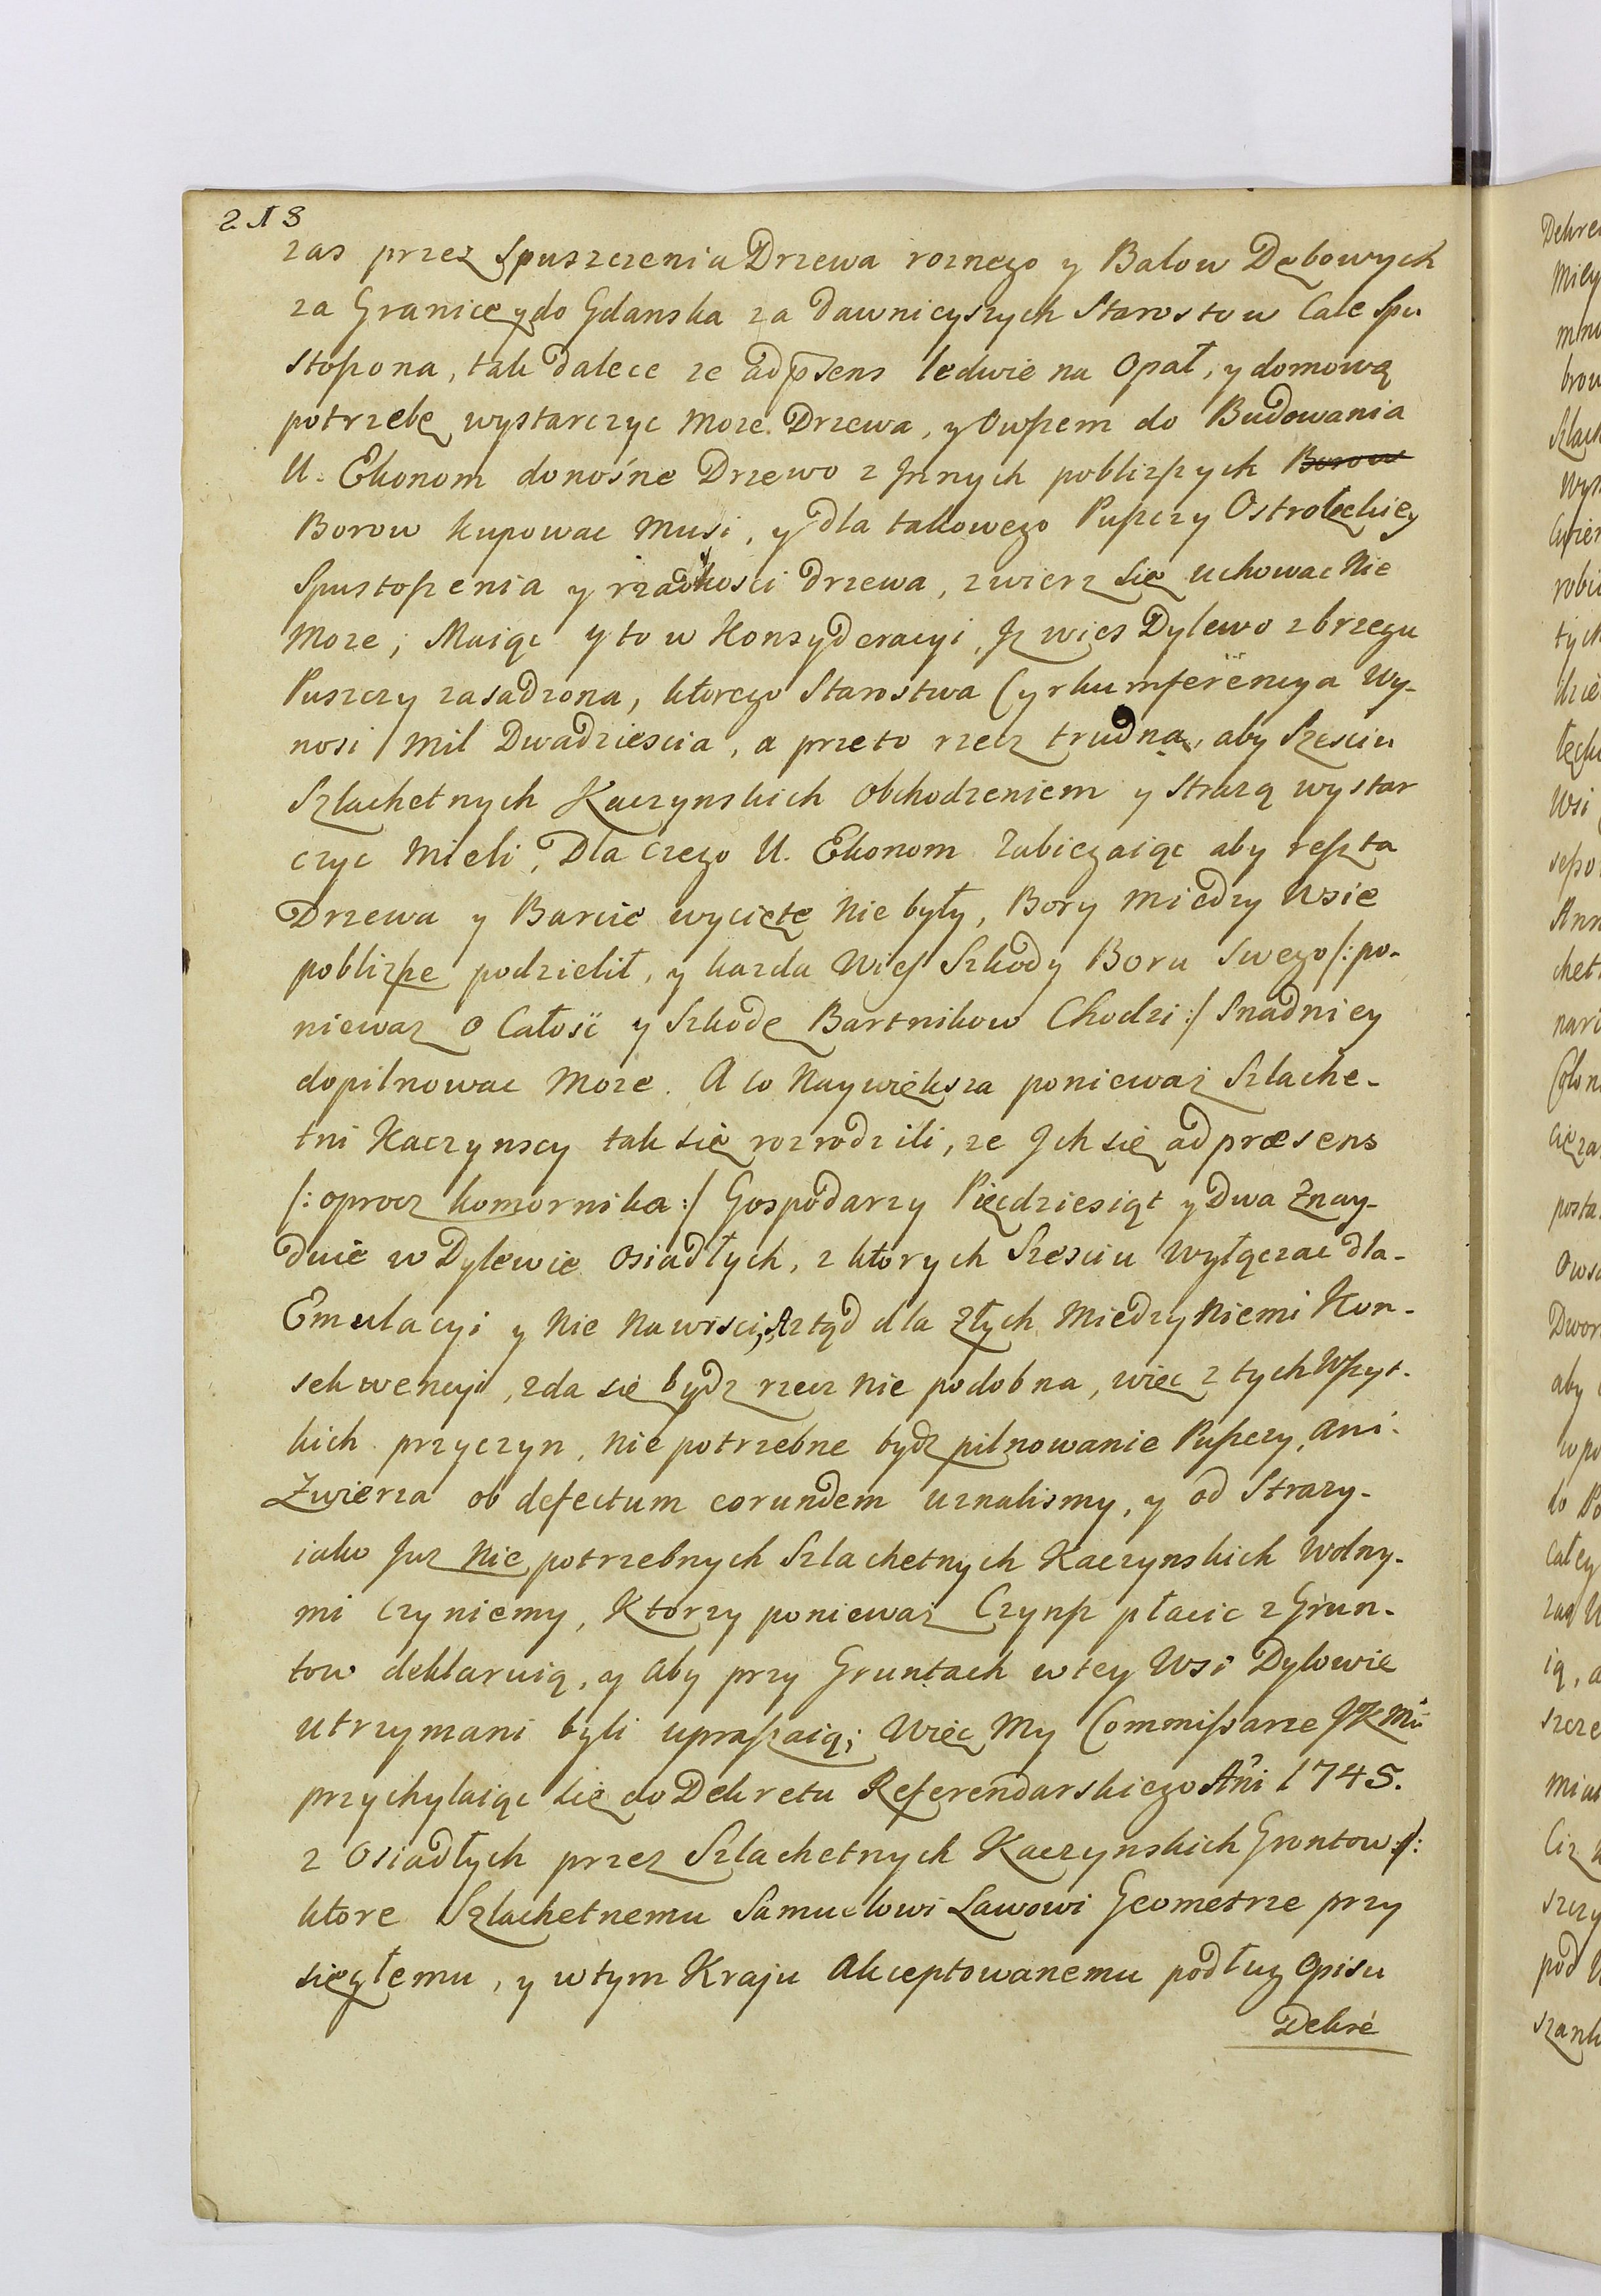 218
zas przez Spuszczenia Drzewa roznego y Balow Dębowych
za Granicę y do Gdanska za dawnieyszych Starostow Cale Spu
stoszona, tak dalece ze ad p̄sens ledwie na Opał, y domową
potrzebę wystarczyc moze Drzewa, y Owszem do Budowania
U. Ekonom donośne Drzewo z Jnnych poblizszych Borow
Borow kupowac musi, y dla takowego Puszczy Ostrołęckiey
Spustoszenia y rzadkosci drzewa, zwierz się uchowac Nie
moze; Maiąc y to w Konsyderacyi, Jz wies Dylewo z brzegu
Puszczy zasadzona, ktorego Starostwa Cyrkumferencya Wy-
nosi mil Dwadziescia, a przeto rzecz trudna, aby Szesciu
Szlachetnych Kaczynskich obchodzeniem y Strażą wystar
czyc mieli, Dla czego U. Ekonom Zabiegaiąc aby reszta
Drzewa y Barcie wycięte Nie były, Bory miedzy Wsie
poblizsze podzielił, y kazda Wies Szkody Boru Swego /: po-
niewaz o Całość y Szkodę Bartnikow Chodzi :/ Snadniey
dopilnowac moze. A co Naywiększa poniewaz Szlache-
tni Kaczynscy tak się rozrodzili, ze Jch się ad præsens
/: oprocz komornika :/ Gospodarzy Pięcdziesiąt y Dwa Znay-
duie w Dylewie Osiadłych, z ktorych Szesciu Wyłączac dla-
Emulacyi y Nie Nawisci, Ztąd dla złych miedzy Niemi Kon-
sekwencyi, zda się bydz rzecz nie podobna, więc z tych Wszyt-
kich przyczyn, nie potrzebne bydz pilnowanie Puszczy, ani-
Zwierza ob defectum eorundem uznalismy, y od Strazy-
iako Juz Nie potrzebnych Szlachetnych Kaczynskich Wolny-
mi Czyniemy, Ktorzy poniewaz Czynsz płacic z Grun-
tow deklaruią, y aby przy Gruntach w tey Wsi Dylowie
utrzymani byli upraszaią; Więc My Commissarze JKMci
przychylaiąc się do Dekretu Referendarskiego Ańi 1745.
z Osiadłych przez Szlachetnych Kaczynskich Grontow /:
ktore Szlachetnemu Samuelowi Lawowi Geometrze przy
sięgłemu, y w tym Kraju Akceptowanemu podług Opisu
Dekre